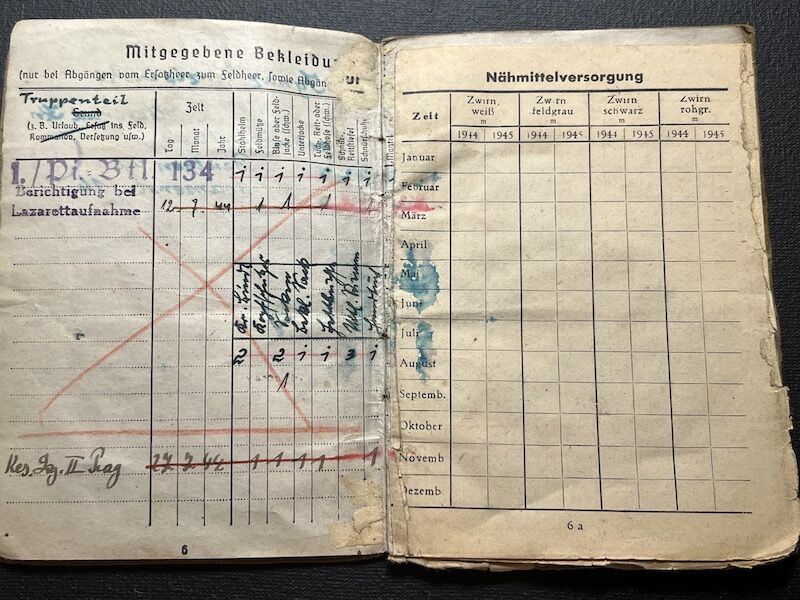 Mitgegebene Bekleidu
(nur bei Abgängen vom Ersatzheer zum Feldheer, sowie Abgän
Truppenteil
Grund
(z. B. Urlaub, Ersatz ins Feld,
Kommando, Versetzung usw.)
Zeit
Tag
Monat
Jahr
Stahlhelm
Feldmütze
Bluse oder Feld-
jacke (schw.)
Unterjacke
Tuch-, Reit- oder
Feldhose (schw.)
Schnürschuhe
Mantel
1./Pi. Btl. 134
i i i i i i i
Berichtigung bei
Lazarettaufnahme
12. 7. 44 1 1 1 1
2 2 i i 3 i
1
Res. Laz. II Prag 27. 7. 44 1 1 1 1 1
6
Nähmittelversorgung
Zeit
Zwirn, weiß m
Zwirn feldgrau m
Zwirn schwarz m
Zwirn rohgr. m
1944 1945 1944 1945 1944 1945 1944 1945
Januar
Februar
März
April
Mai
Juni
Juli
August
Septemb.
Oktober
Novemb
Dezemb
6 a